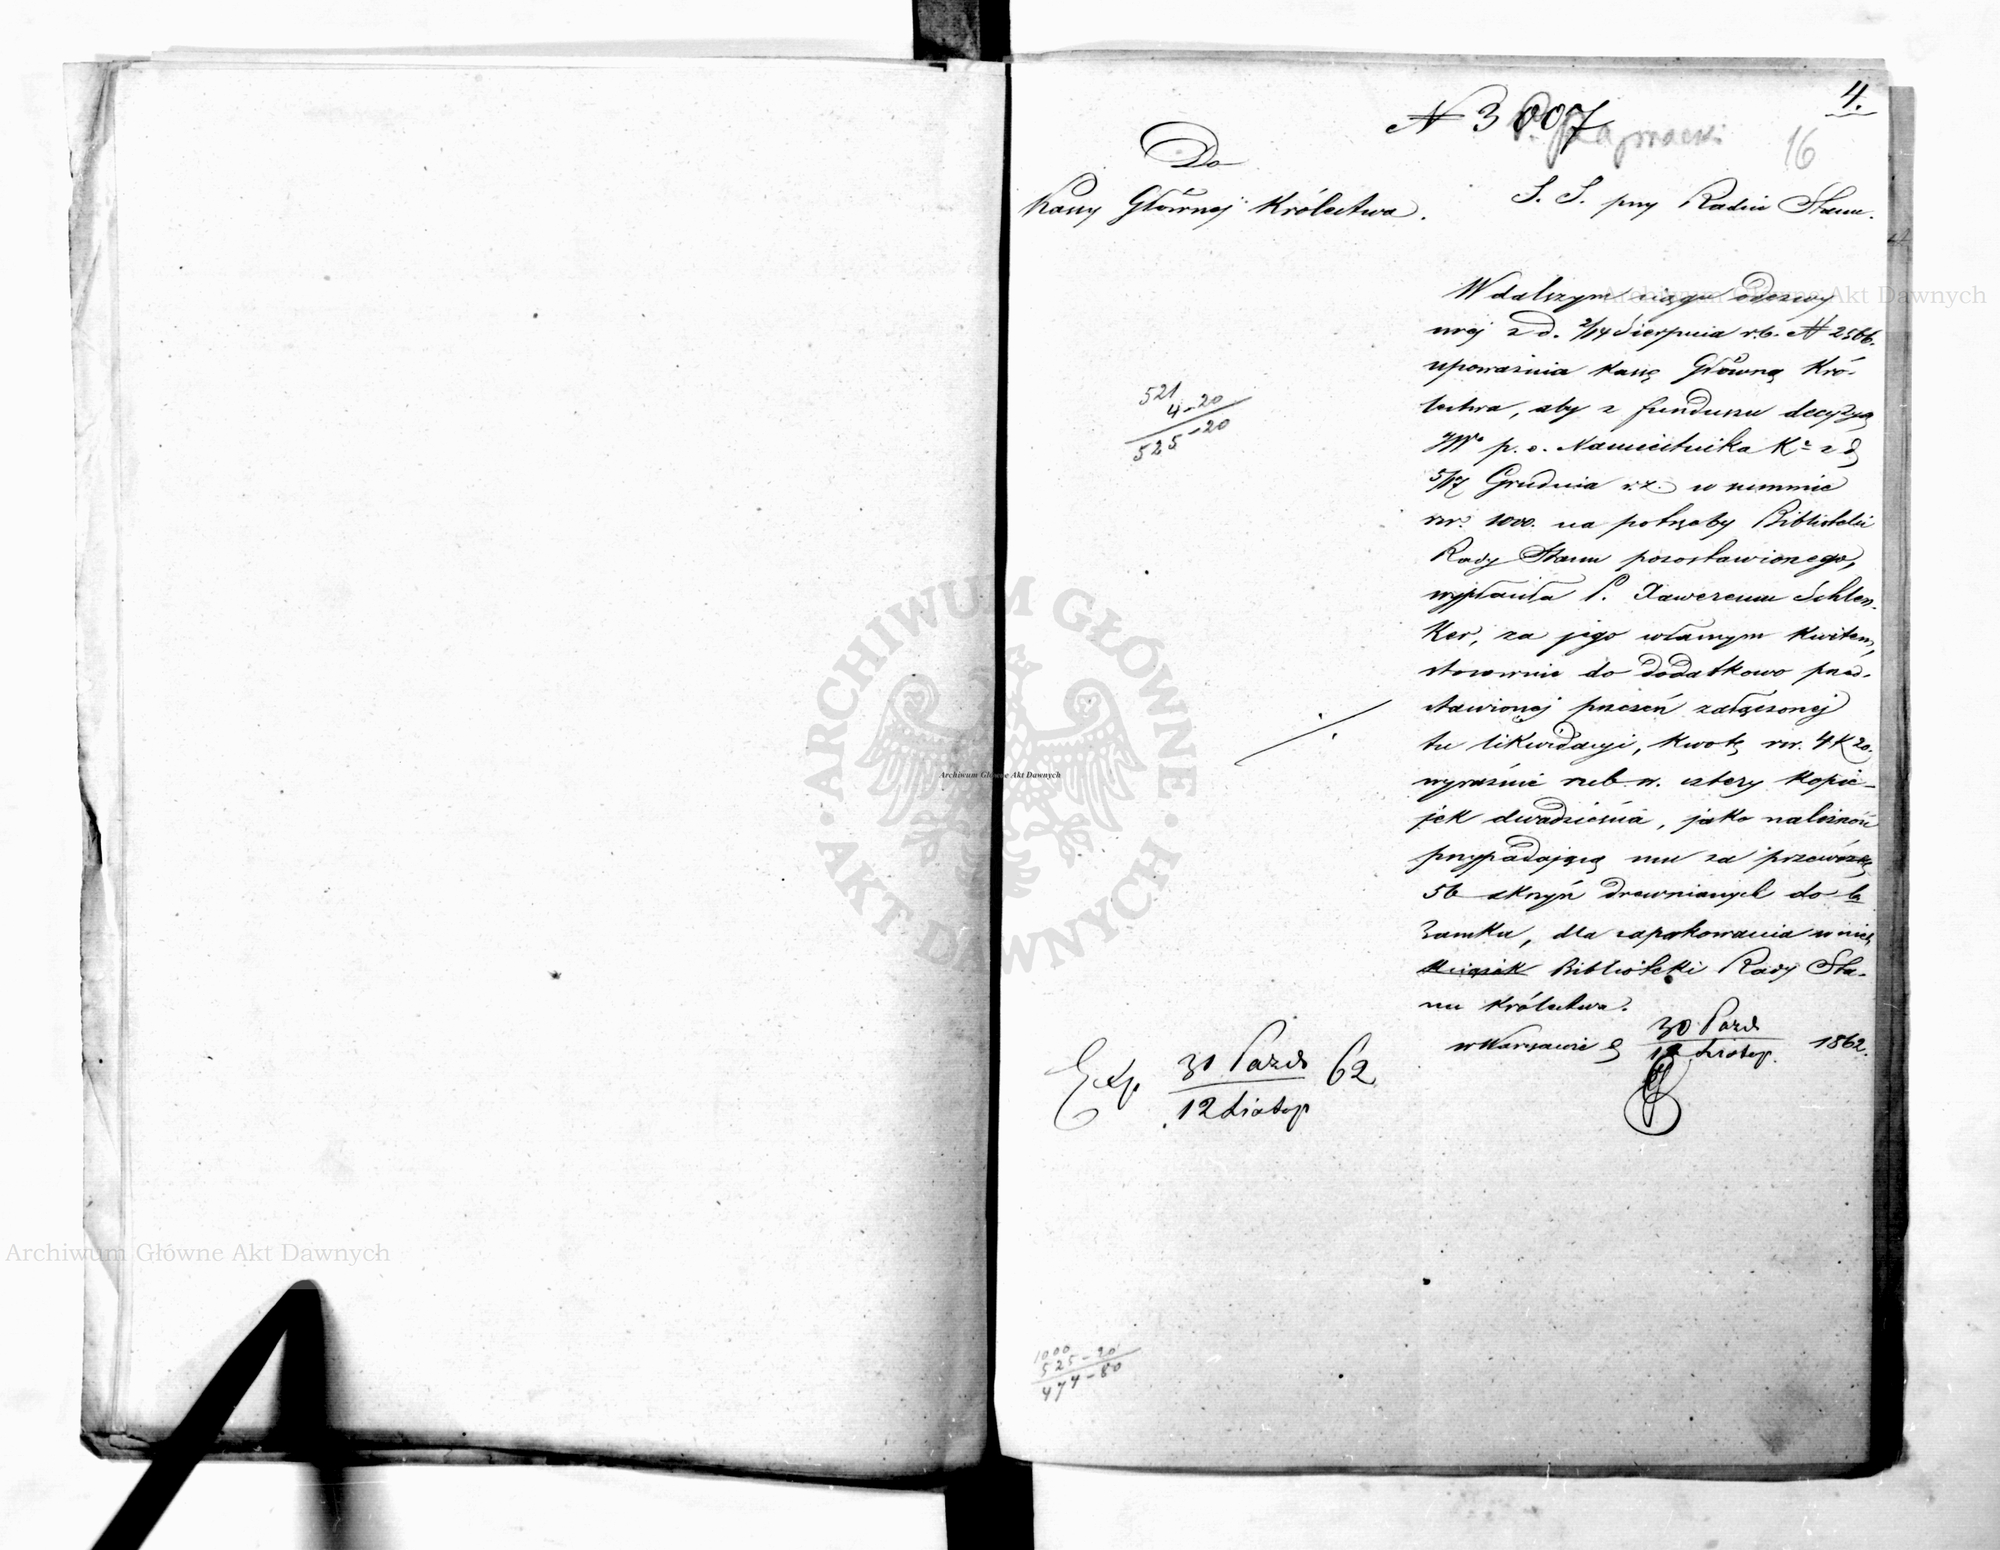 4.
N 3007
16
Do
Kassy Głównej Królestwa.
S. S. przy Radzie Stanu.
W dalszym ciągu odezwy
mej z d. 2/14 Sierpnia r.b. N 2566.
upoważnia Kassę Główną Kró-
lestwa, aby z funduszu decyzyą
JW. p. o. Namiestnika K. z d.
5/17 Grudnia r.z. w summie
rsr. 1000. na potrzeby Biblioteki
Rady Stanu pozostawionego,
wypłaciła P. Xaweremu Schlen-
ker, za jego własnym kwitem,
stosownie do dodatkowo przed-
stawionej przezeń załączonej
tu likwidacyi, kwotę rsr. 4 K 20.
wyraźnie rub. sr. cztery kopie-
jek dwadzieścia, jako należność
przypadającą mu za przewózkę
56 skrzyń drewnianych do
Zamku, dla zapakowania w nich
książek Biblioteki Rady Sta-
nu Królestwa.
w Warszawie d. 30 Paźd 1862.
12 Listop.
521
4-20
525-20
Exp. 31 Paźd 62
12 Listop
1000
525-20
474-80
Archiwum Główne Akt Dawnych
ARCHIWUM GŁÓWNE
AKT DAWNYCH
Archiwum Główne Akt Dawnych
Archiwum Główne Akt Dawnych